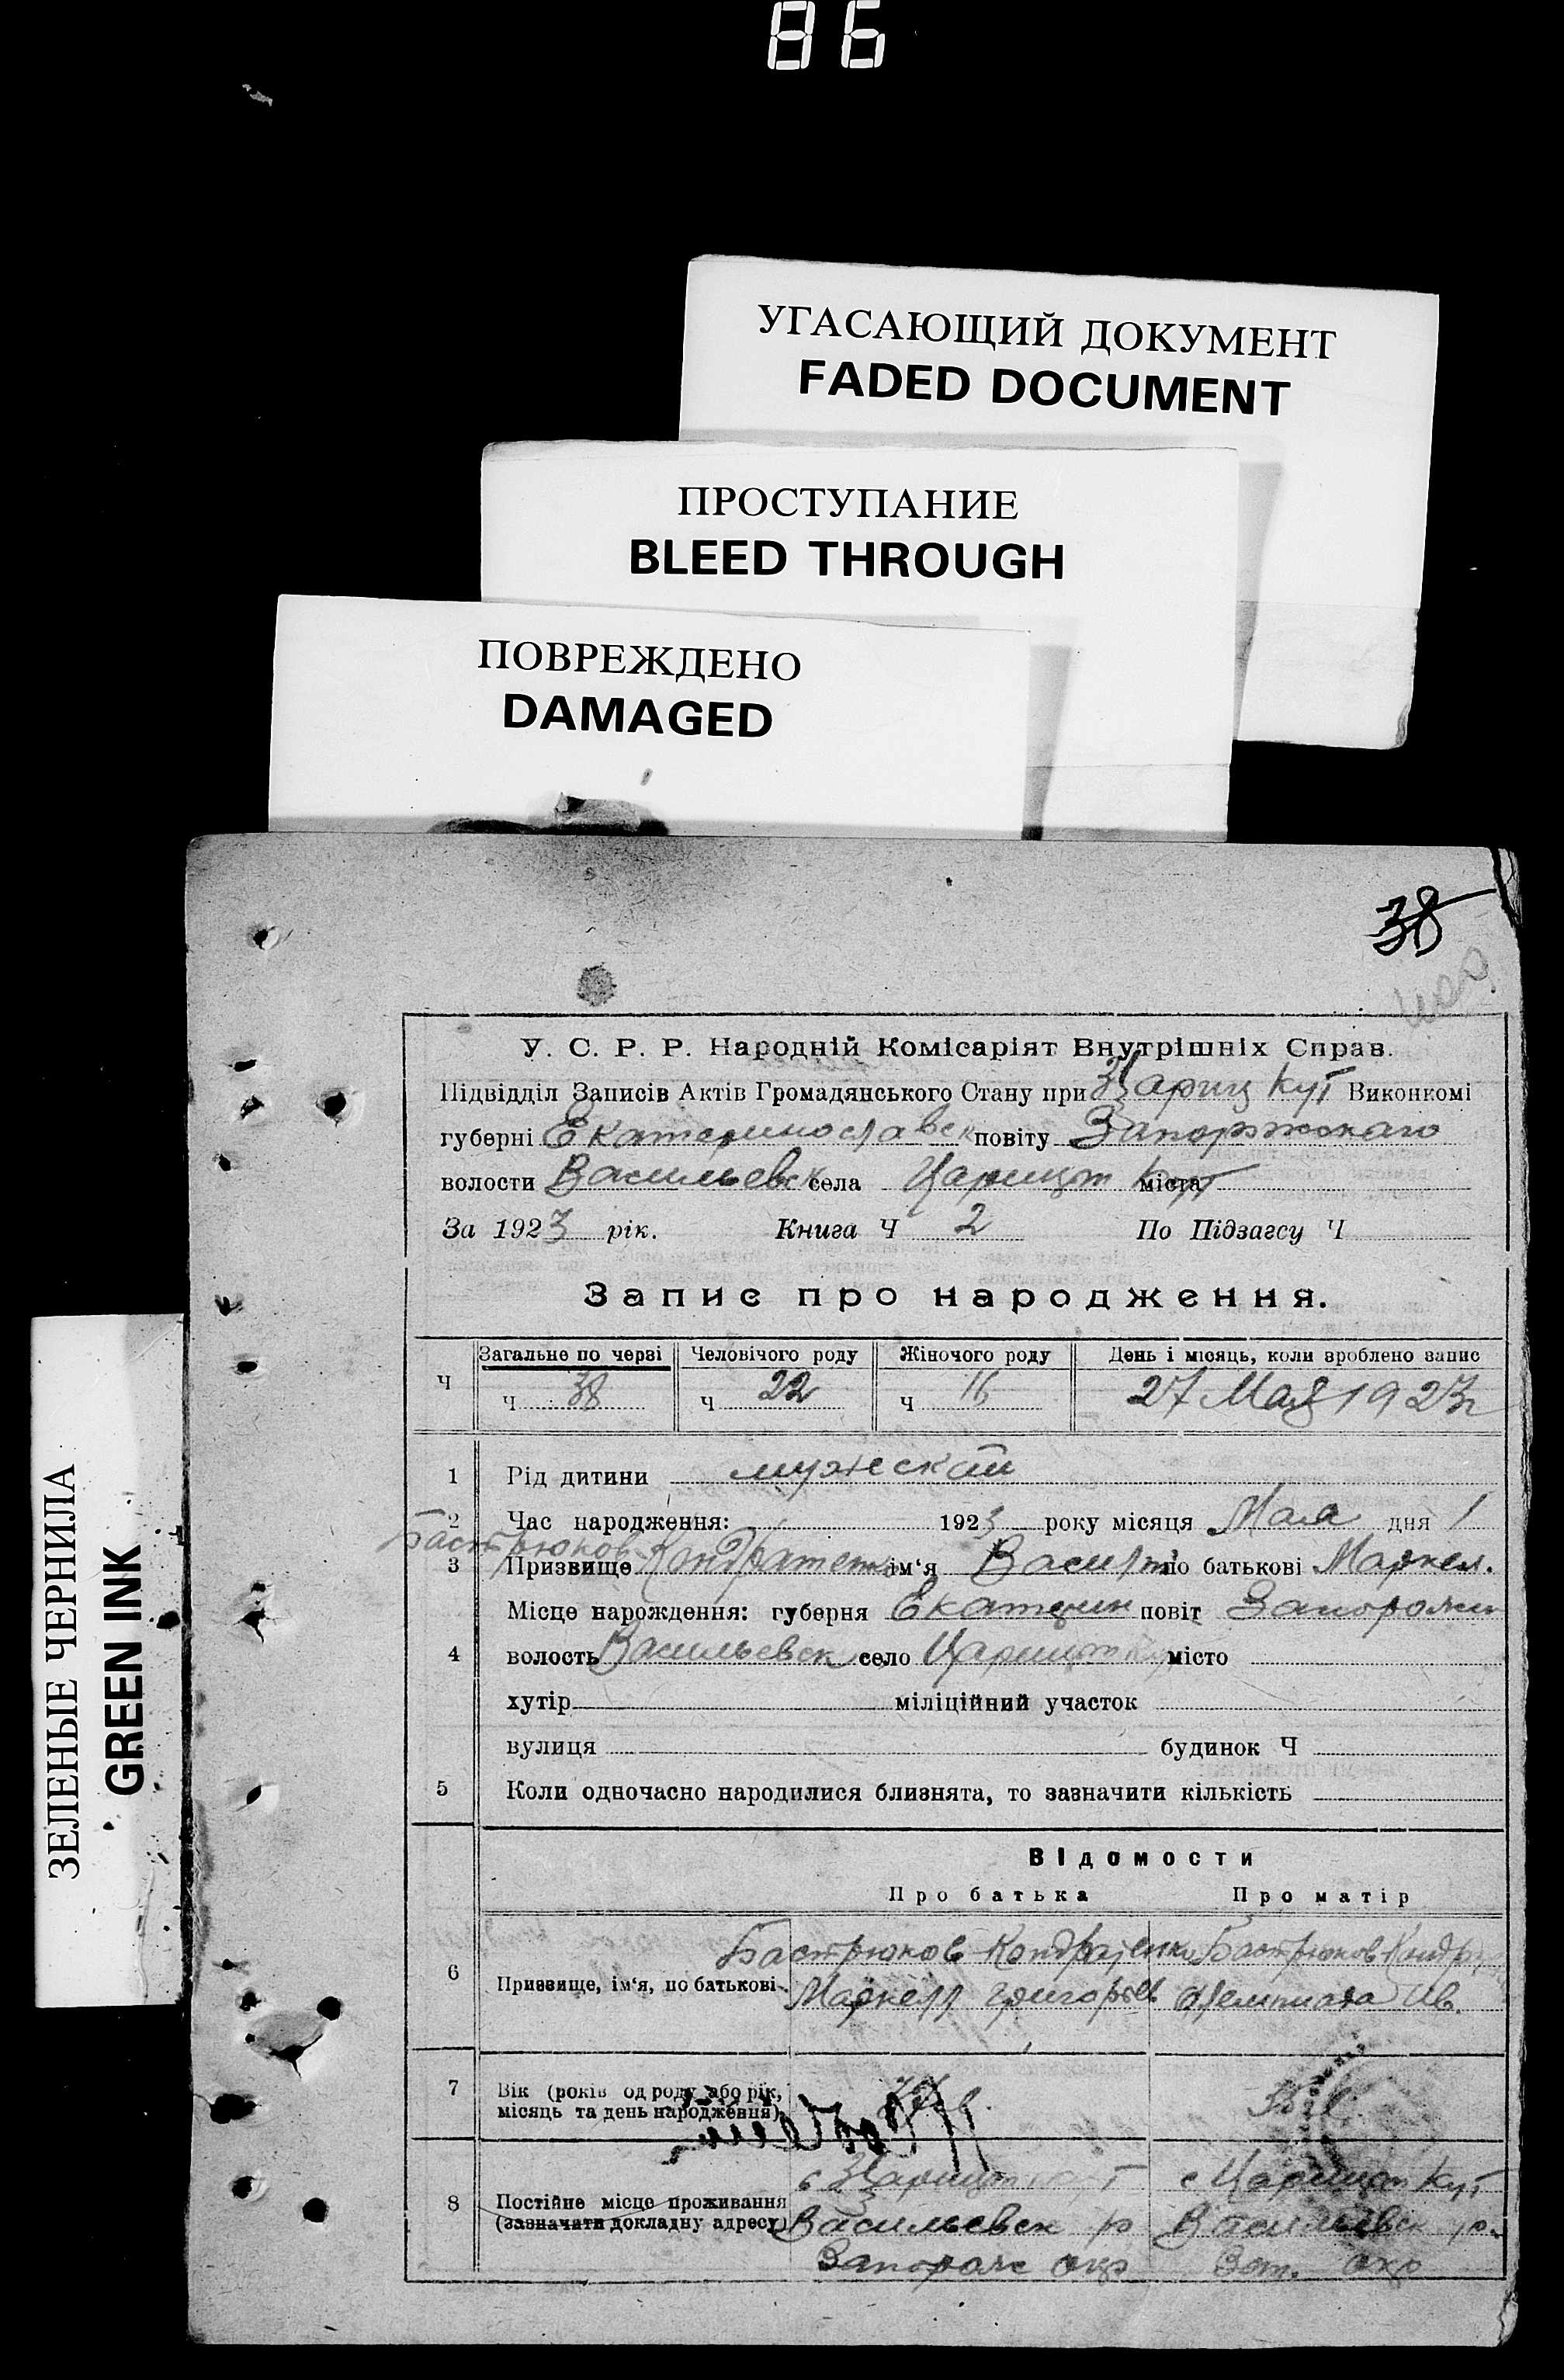 86
УГАСАЮЩИЙ ДОКУМЕНТ
FADED DOCUMENT
ПРОСТУПАНИЕ
BLEED THROUGH
ПОВРЕЖДЕНО
DAMAGED
ЗЕЛЕНЫЕ ЧЕРНИЛА
GREEN INK
38
У. С. Р. Р. Народній Комісаріят Внутрішніх Справ.
Підвідділ Записів Актів Громадянського Стану при Цариц Кут Виконкомі
губерні Екатеринославск повіту Запорожскаго
волости Васильевск села Царицын Кут міста
За 1923 рік. Книга Ч 2 По Підзагсу Ч
Запис про народження.
Загальне по черзі Человічого роду Жіночого роду День і місяць, коли зроблено запис
Ч Ч 38 Ч 22 Ч 16 27 Мая 1923 г
1 Рід дитини мужеской
2 Час народження: 1923 року місяця Мая дня 1
Бастрюков
3 Призвище Кондратенко ім‘я Василий по батькові Маркел.
Місце нарождення: губерня Екатерин повіт Запорожск
4 волость Васильевск село Царицын Кут місто
хутір міліційний участок
вулиця будинок Ч
5 Коли одночасно народилися близнята, то зазначити кількість
Відомости
Про батька Про матір
Бастрюков Кондратенко Бастрюков Кондр
6 Призвище, ім‘я, по батькові Маркелл Григорьев Ив.
7 Вік (років од роду або рік,
місяць та день народження)
с Царицын Кут с Царицын Кут
8 Постійне місце проживання
(зазначити докладну адресу) Васильевск р Васильевск р.
Запорож окр Зап. окр